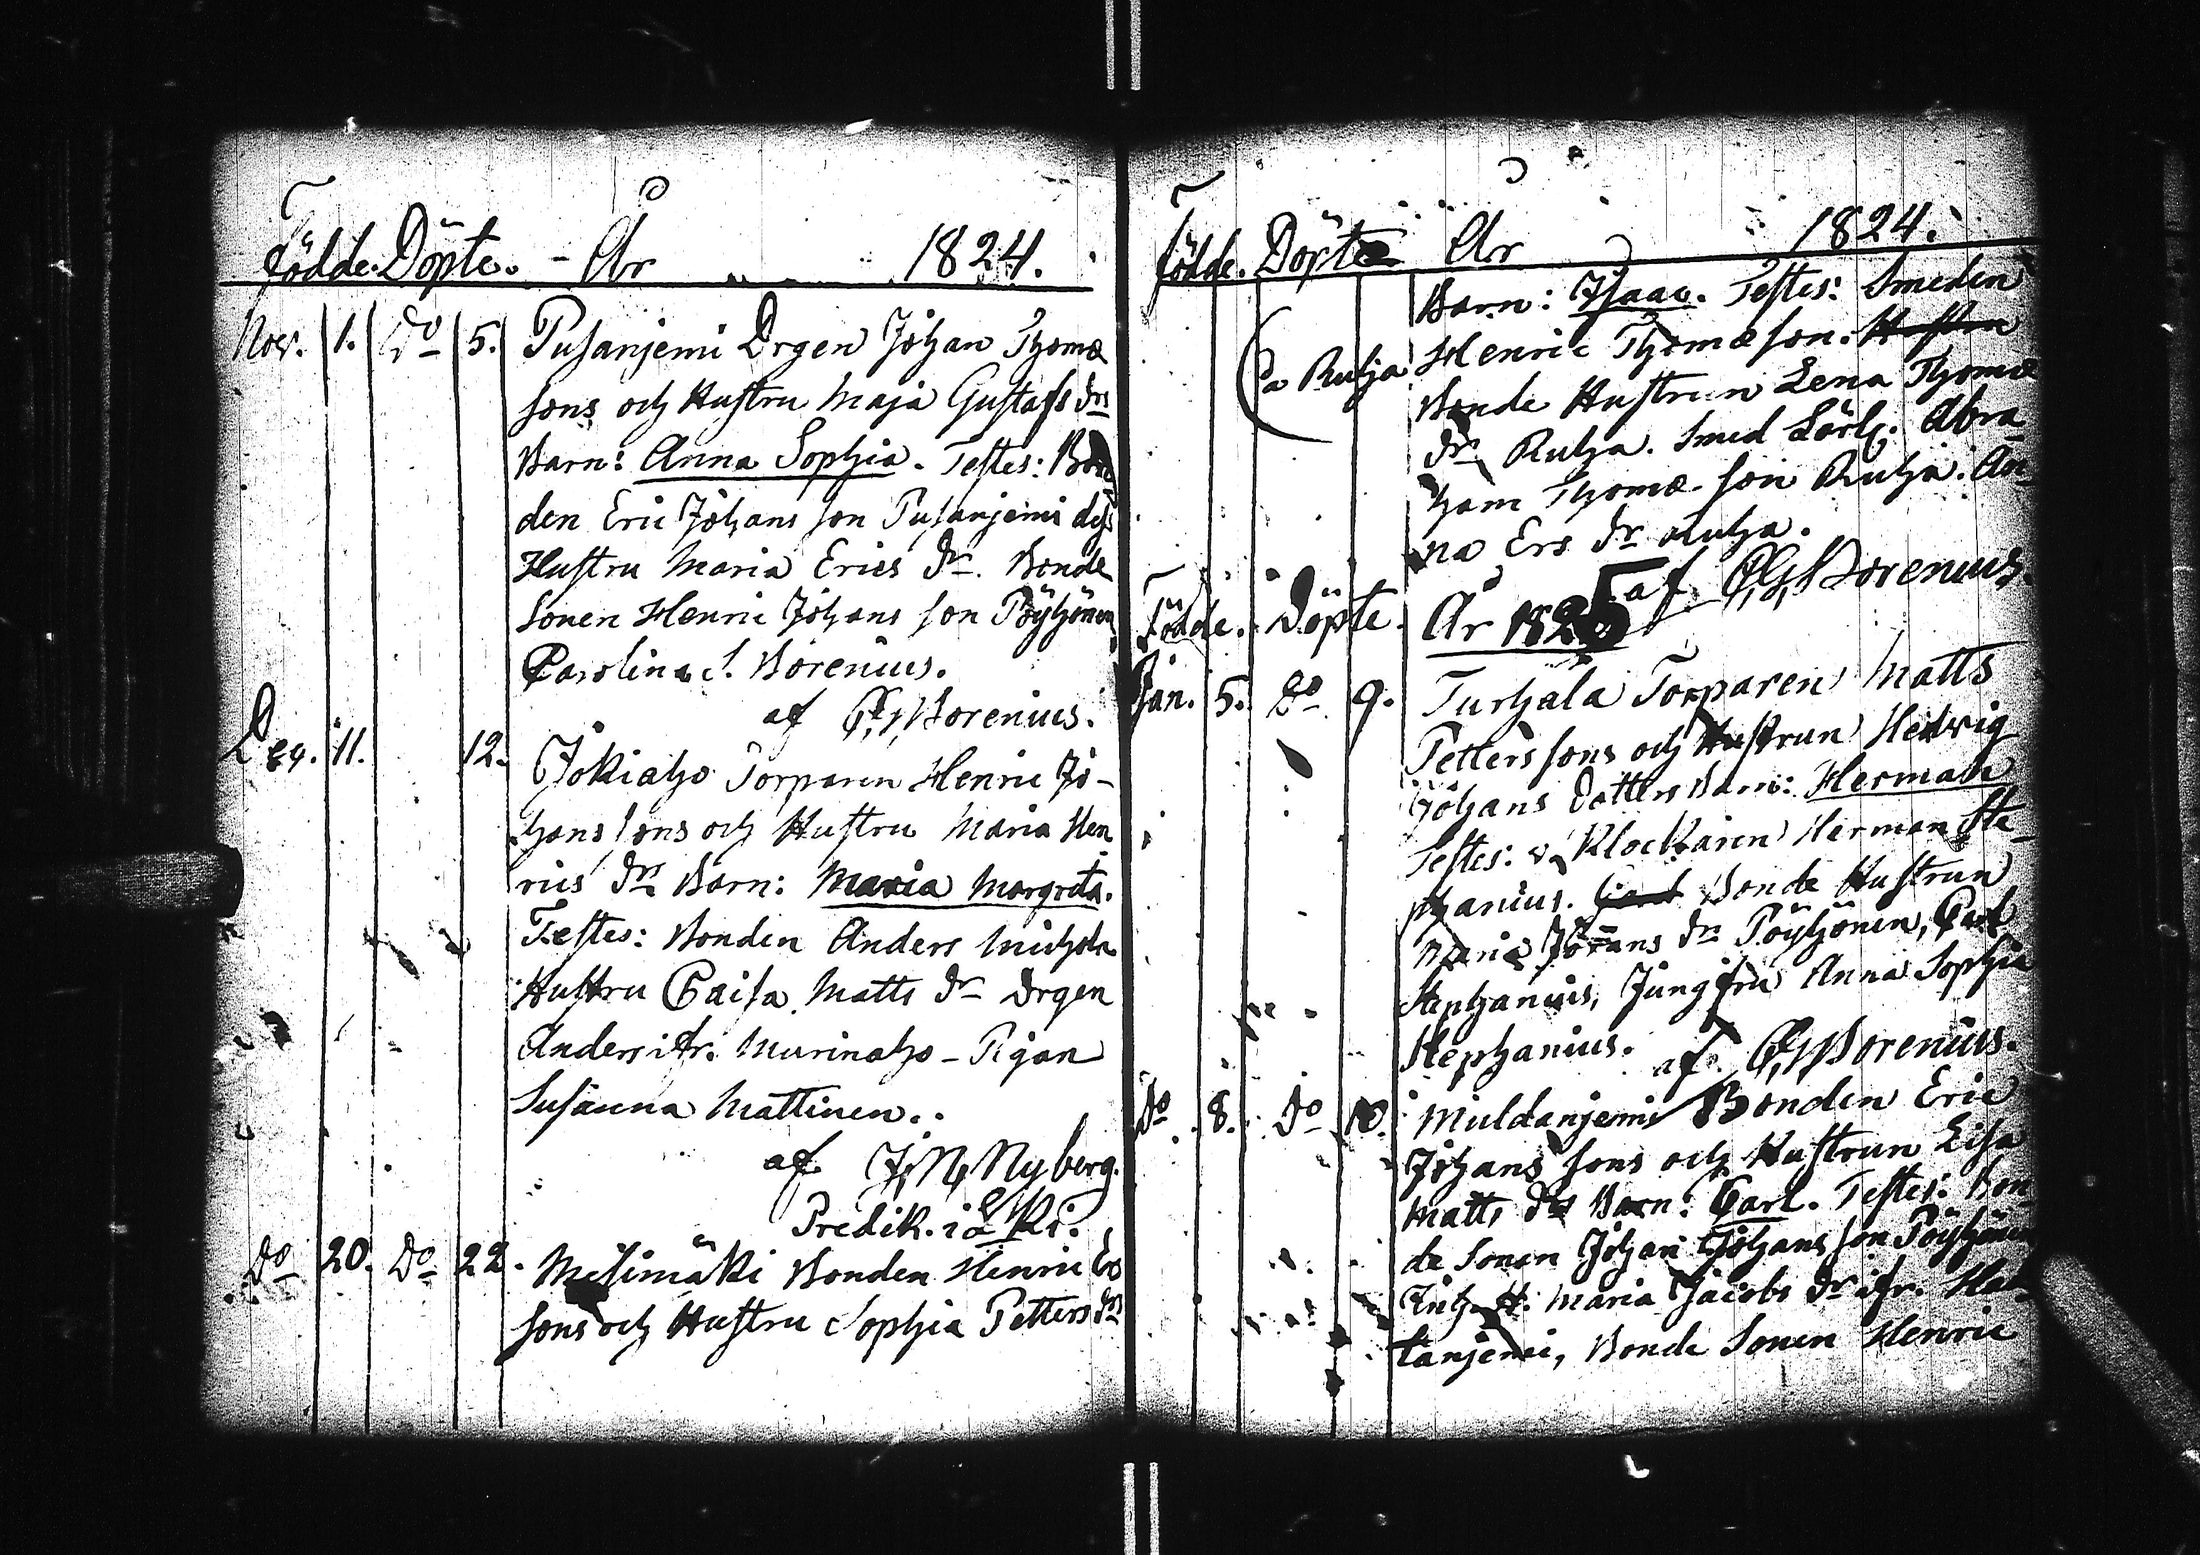 Födde. Döpte. - År 1824.
Nov. 1. Do 5. Pusanjemi Drgen Johan Thomæ
sons och Hustru Maja Gustafs drs
Barn: Anna Sophia. Testes: Bon
den Eric Johans son Pusanjemi dess
Hustru Maria Erics dr. Bonde
Sonen Henric Johans son Pöyhönen
Carolina S. Borenius.
af C,G,Borenius.
Dec. 11. 12. Jokiaho Torparen Henric Jo-
hans sons och Hustru Maria Hen
rics drs Barn: Maria Margreta.
Testes: Bonden Anders
Hustru Caisa Matts dr Drgen
Anders ifr. Murinaho - Pigan
Susanna Mattinen.
af J,N,Nyberg.
Predik. i
Do 20. Do 22. Mesimäki Bonden Henric Ers
sons och Hustru Sophia Petters drs
Födde. Döpte År 1824.
Barn: Isaac. Testes: Smeden
Ruha Henric Thomæ son. Hustru
Bonde Hustrun Lena Thomæ
dr Ruha. Smed Lärl. Abra
ham Thomæ son Ruha. An
na Ers dr Ruha.
af C,G,Borenius.
Födde. Döpte. År 1825
Jan. 5. Do 9. Turhala Torparen Matts
Petters sons och Hustrun Hedvig
Johans Dotters Barn: Herman
Testes: v. Klockaren Herman Ste
phanius. Carl Bonde Hustrun
Maria Johans dr Pöyhönen, Carl
Stephanius, Jungfru Anna Sophia
Stephanius. af C,G,Borenius.
Do 8. Do 10. Muldanjemi Bonden Eric
Johans sons och Hustrun Lisa
Matts drs Barn: Carl. Testes: Bon
de Sonen Johan Johans son Pöyhönen
Maria Jacobs dr ifr.
tanjemi, Bonde Sonen Henric